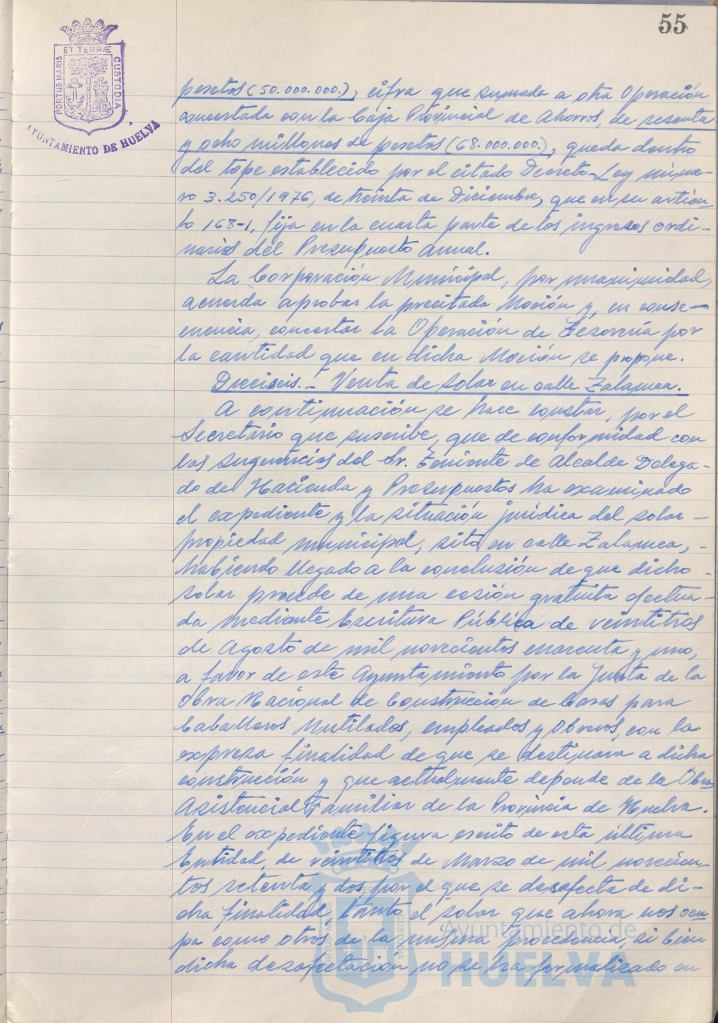 55
PORTUS MARIS
ET TERRÆ
CUSTODIA
AYUNTAMIENTO DE HUELVA
pesetas (50.000.000.), cifra que sumada a otra Operación
concertada con la Caja Provincial de Ahorros, de sesenta
y ocho millones de pesetas (68.000.000.), queda dentro
del tope establecido por el citado Decreto-Ley núme-
ro 3.250/1976, de treinta de Diciembre, que en su artícu-
lo 168-1, fija en la cuarta parte de los ingresos ordi-
narios del Presupuesto Anual.
La Corporación Municipal, por unanimidad,
acuerda aprobar la precitada Moción y, en conse-
cuencia, concertar la Operación de Tesorería por
la cantidad que en dicha Moción se propone.
Dieciseis.- Venta de solar en calle Zalamea.
A continuación se hace constar, por el
Secretario que suscribe, que de conformidad con
las sugerencias del Sr. Teniente de Alcalde Delega-
do de Hacienda y Presupuestos ha examinado
el expediente y la situación jurídica del solar-
propiedad municipal, sito en calle Zalamea,-
habiendo llegado a la conclusión de que dicho-
solar procede de una cesión gratuita efectua-
da mediante Escritura Pública de veintitres
de Agosto de mil novecientos cuarenta y uno,
a favor de este Ayuntamiento por la Junta de la
Obra Nacional de Construcción de Casas para
Caballeros Mutilados, empleados y Obreros, con la
expresa finalidad de que se destinara a dicha
construcción y que actualmente depende de la Obra
Asistencial Familiar de la Provincia de Huelva.
En el expediente figura escrito de esta última
Entidad, de veintitres de Marzo de mil novecien-
tos setenta y dos, por el que se desafecta de di-
cha finalidad, tanto el solar que ahora nos ocu-
pa como otros de la misma procedencia, si bien
dicha desafectación no se ha formalizado en
Ayuntamiento de
HUELVA